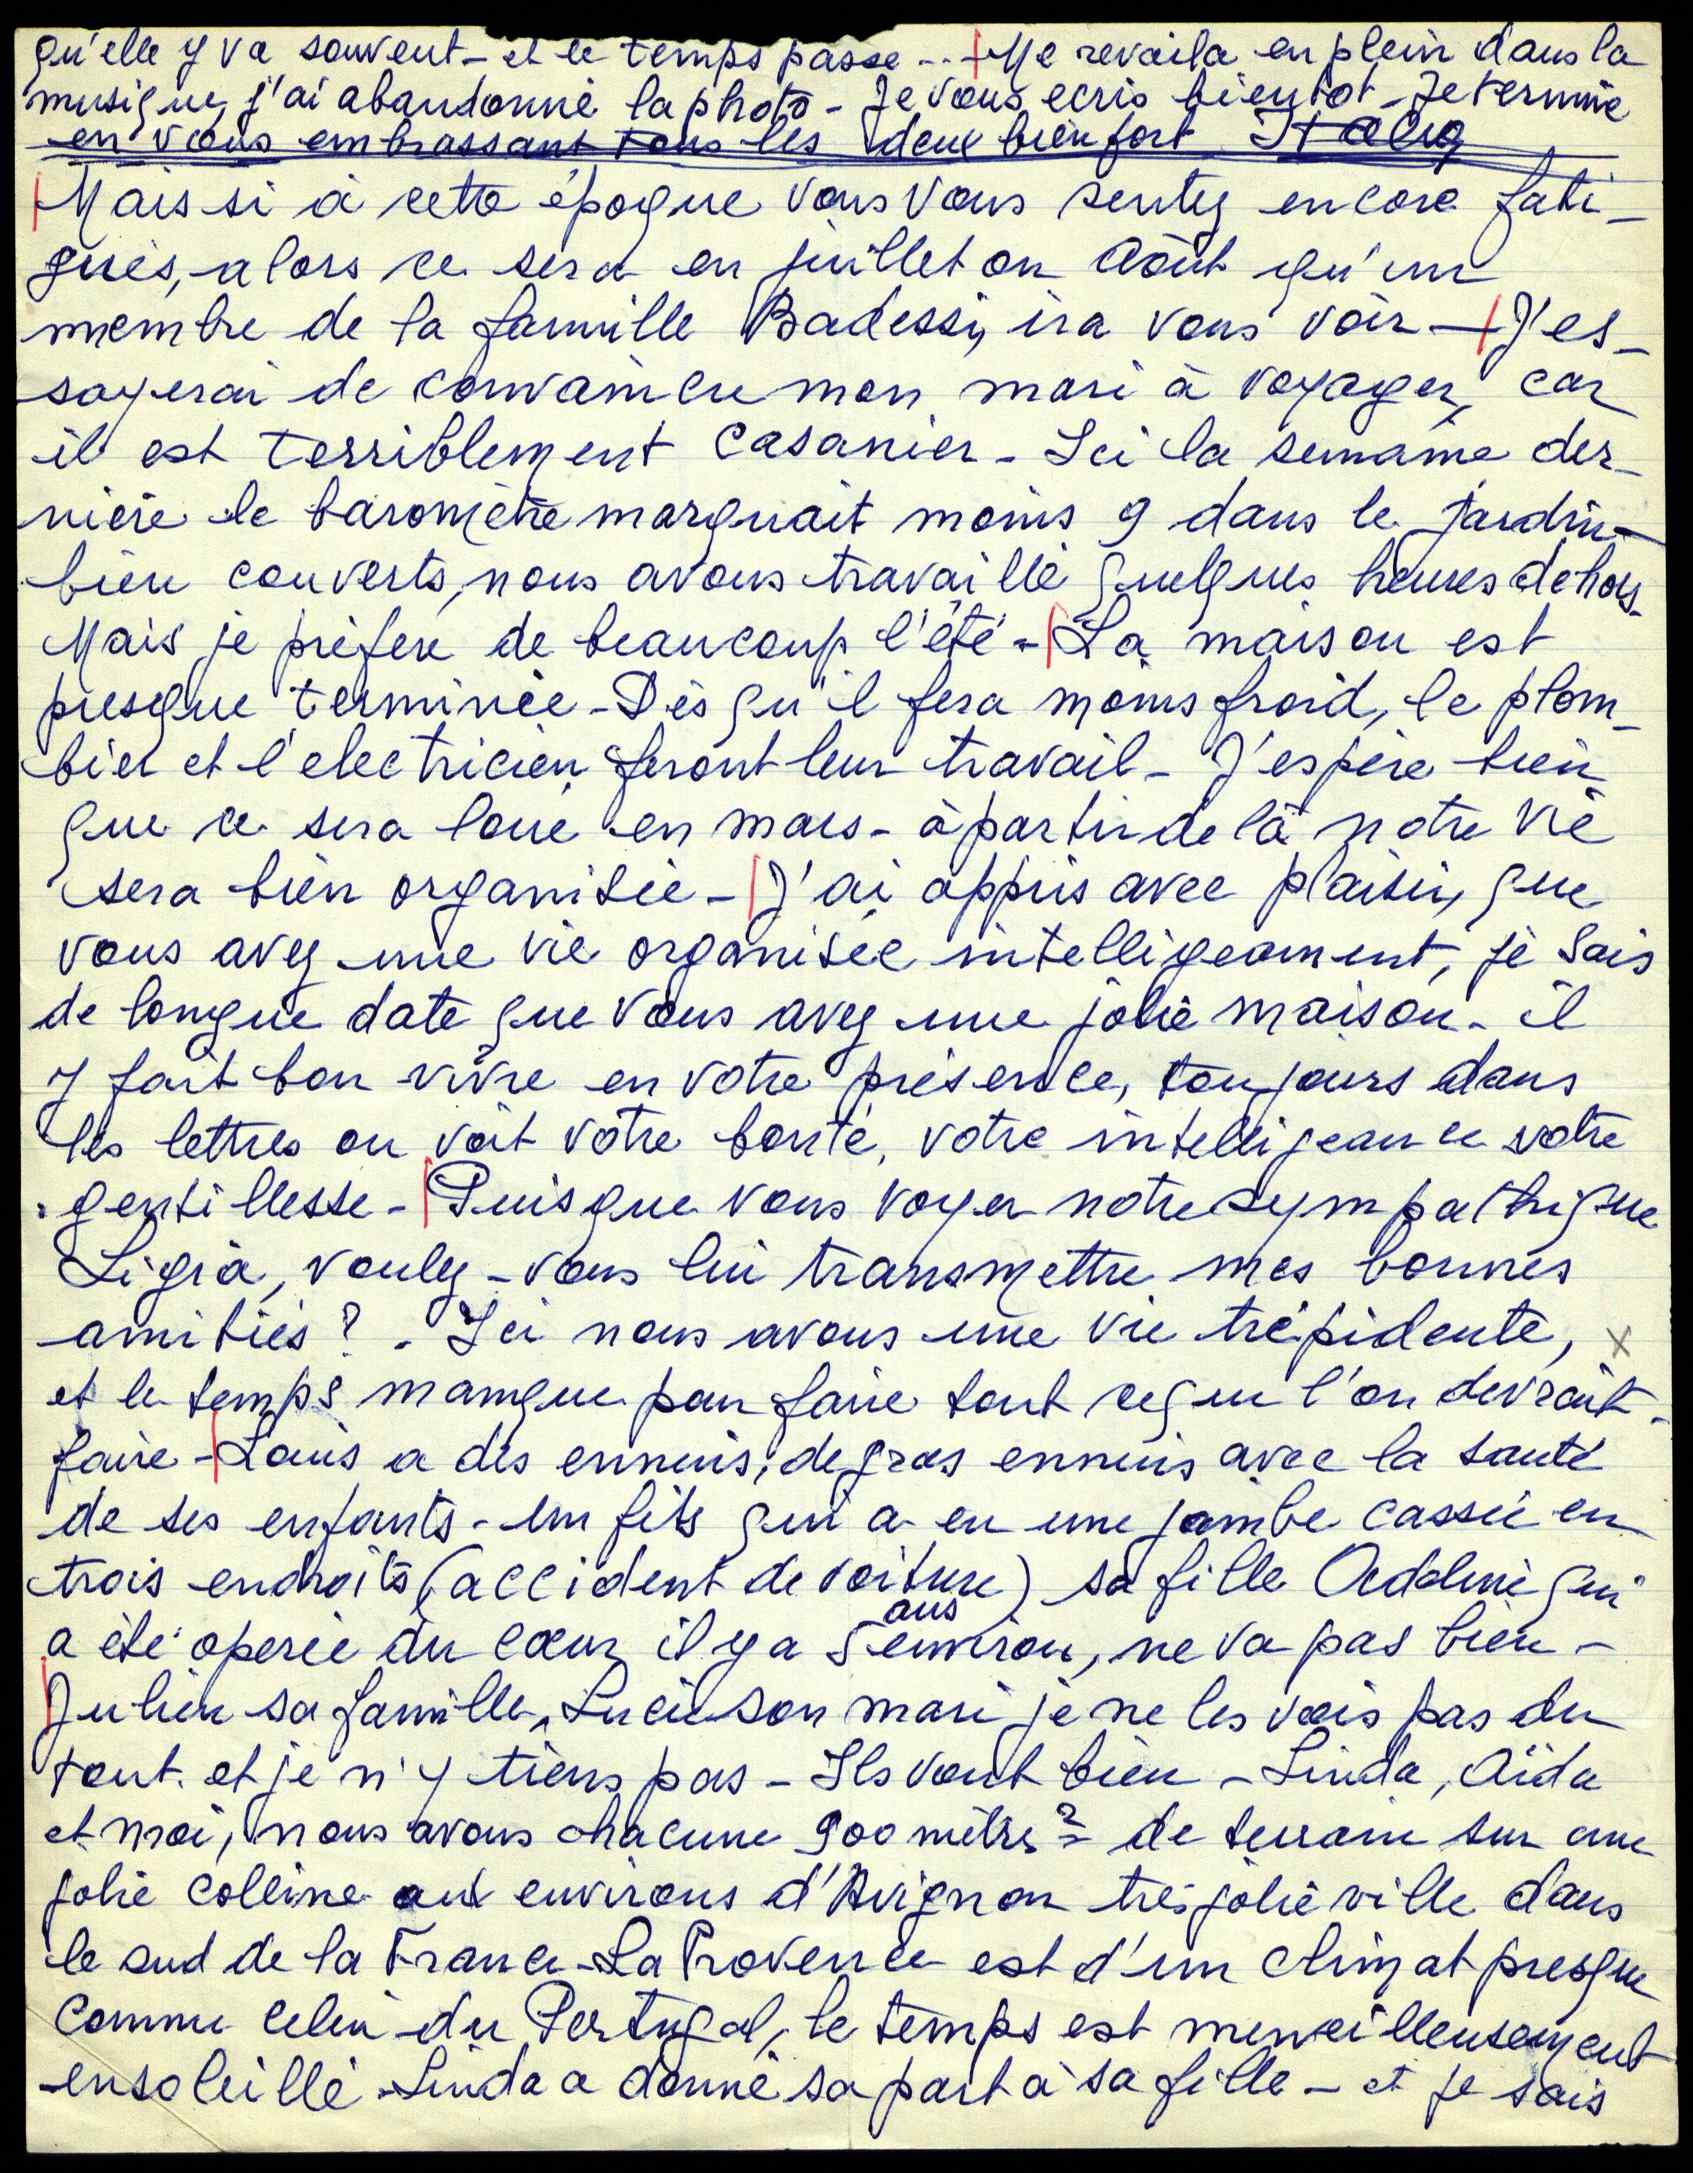 qu'elle y va souvent - et le temps passe... + Me revoila en plein dans la
musique, j'ai abandonné la photo - Je vous ecris bientot - Je termine
en vous embrassant tous les deux bien fort
Mais si à cette époque vous vous sentez encore fati-
gués, alors ce sera en juillet ou Août qu'un
membre de la famille Badessi, ira vous voir - J'es-
sayerai de convaincre mon mari à voyager, car
il est terriblement casanier - Ici la semaine der-
nière le baromètre marquait moins 9 dans le jardin -
bien couverts, nous avons travaillé quelques heures dehors -
Mais je préfère de beaucoup l'été - La maison est
presque terminée - Dès qu'il fera moins froid, le plom-
bier et l'electricien feront leur travail - J'espère bien
que ce sera loué en mars - à partir de là notre vie
sera bien organisée - J'ai appris avec plaisir, que
vous avez une vie organisée intelligeamment, je sais
de longue date que vous avez une jolie maison - il
y fait bon vivre en votre présence, toujours dans
les lettres on voit votre bonté, votre intelligeance votre
gentillesse - Puisque vous voyez notre sympathique
Ligia, voulez-vous lui transmettre mes bonnes
amitiés ? - Ici nous avons une vie trépidente, x
et le temps manque pour faire tout ce que l'on devrait -
faire - Louis a des ennuis, de gros ennuis avec la santé
de ses enfants - un fils qui a eu une jambe cassée en
trois endroits (accident de voiture) sa fille qui
a été opérée du cœur il y a 5 ans environ, ne va pas bien -
Julien sa famille, Lucie son mari je ne les vois pas du
tout et je n'y tiens pas - Ils vont bien - Linda, Aïda
et moi, nous avons chacune 900 mètres 2 de terrain sur une
jolie colline aux environs d'Avignon très jolie ville dans
le sud de la France - La Provence est d'un climat presque
comme celui du Portugal, le temps est merveilleusement
ensoleillé - Linda a donné sa part à sa fille - et je sais